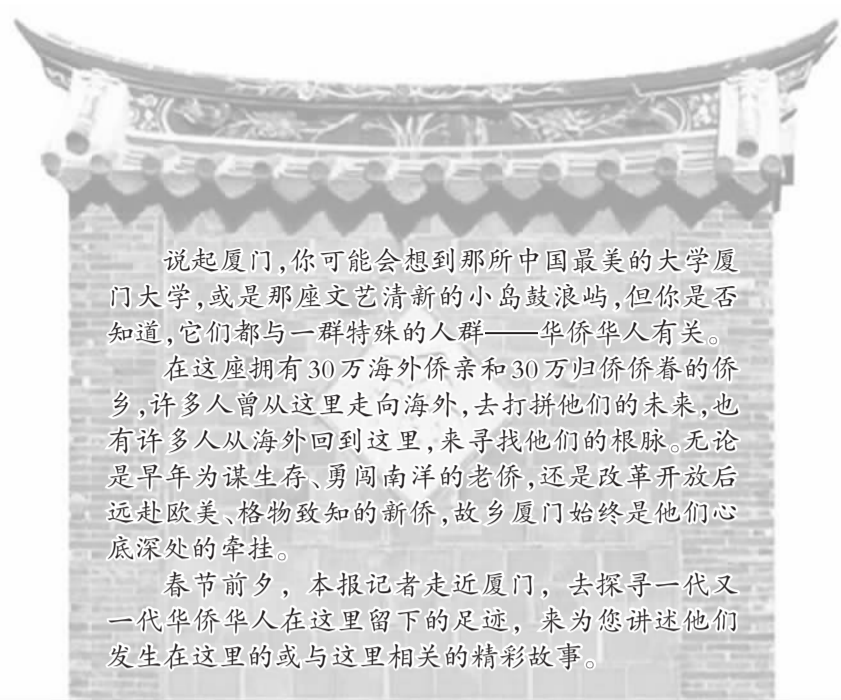 说起厦门,你可能会想到那所中国最美的大学厦
门大学,或是那座文艺清新的小岛鼓浪屿,但你是否
知道,它们都与一群特殊的人群——华侨华人有关。
在这座拥有30万海外侨亲和30万归侨侨眷的侨
乡,许多人曾从这里走向海外,去打拼他们的未来,也
有许多人从海外回到这里,来寻找他们的根脉。无论
是早年为谋生存、勇闯南洋的老侨,还是改革开放后
远赴欧美、格物致知的新侨,故乡厦门始终是他们心
底深处的牵挂。
春节前夕，本报记者走近厦门，去探寻一代又
一代华侨华人在这里留下的足迹，来为您讲述他们
发生在这里的或与这里相关的精彩故事。